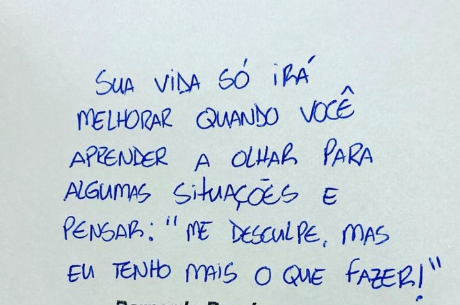 SUA VIDA SÓ IRÁ
MELHORAR QUANDO VOCÊ
APRENDER A OLHAR PARA
ALGUMAS SITUAÇÕES E
PENSAR: "ME DESCULPE, MAS
EU TENHO MAIS O QUE FAZER!"